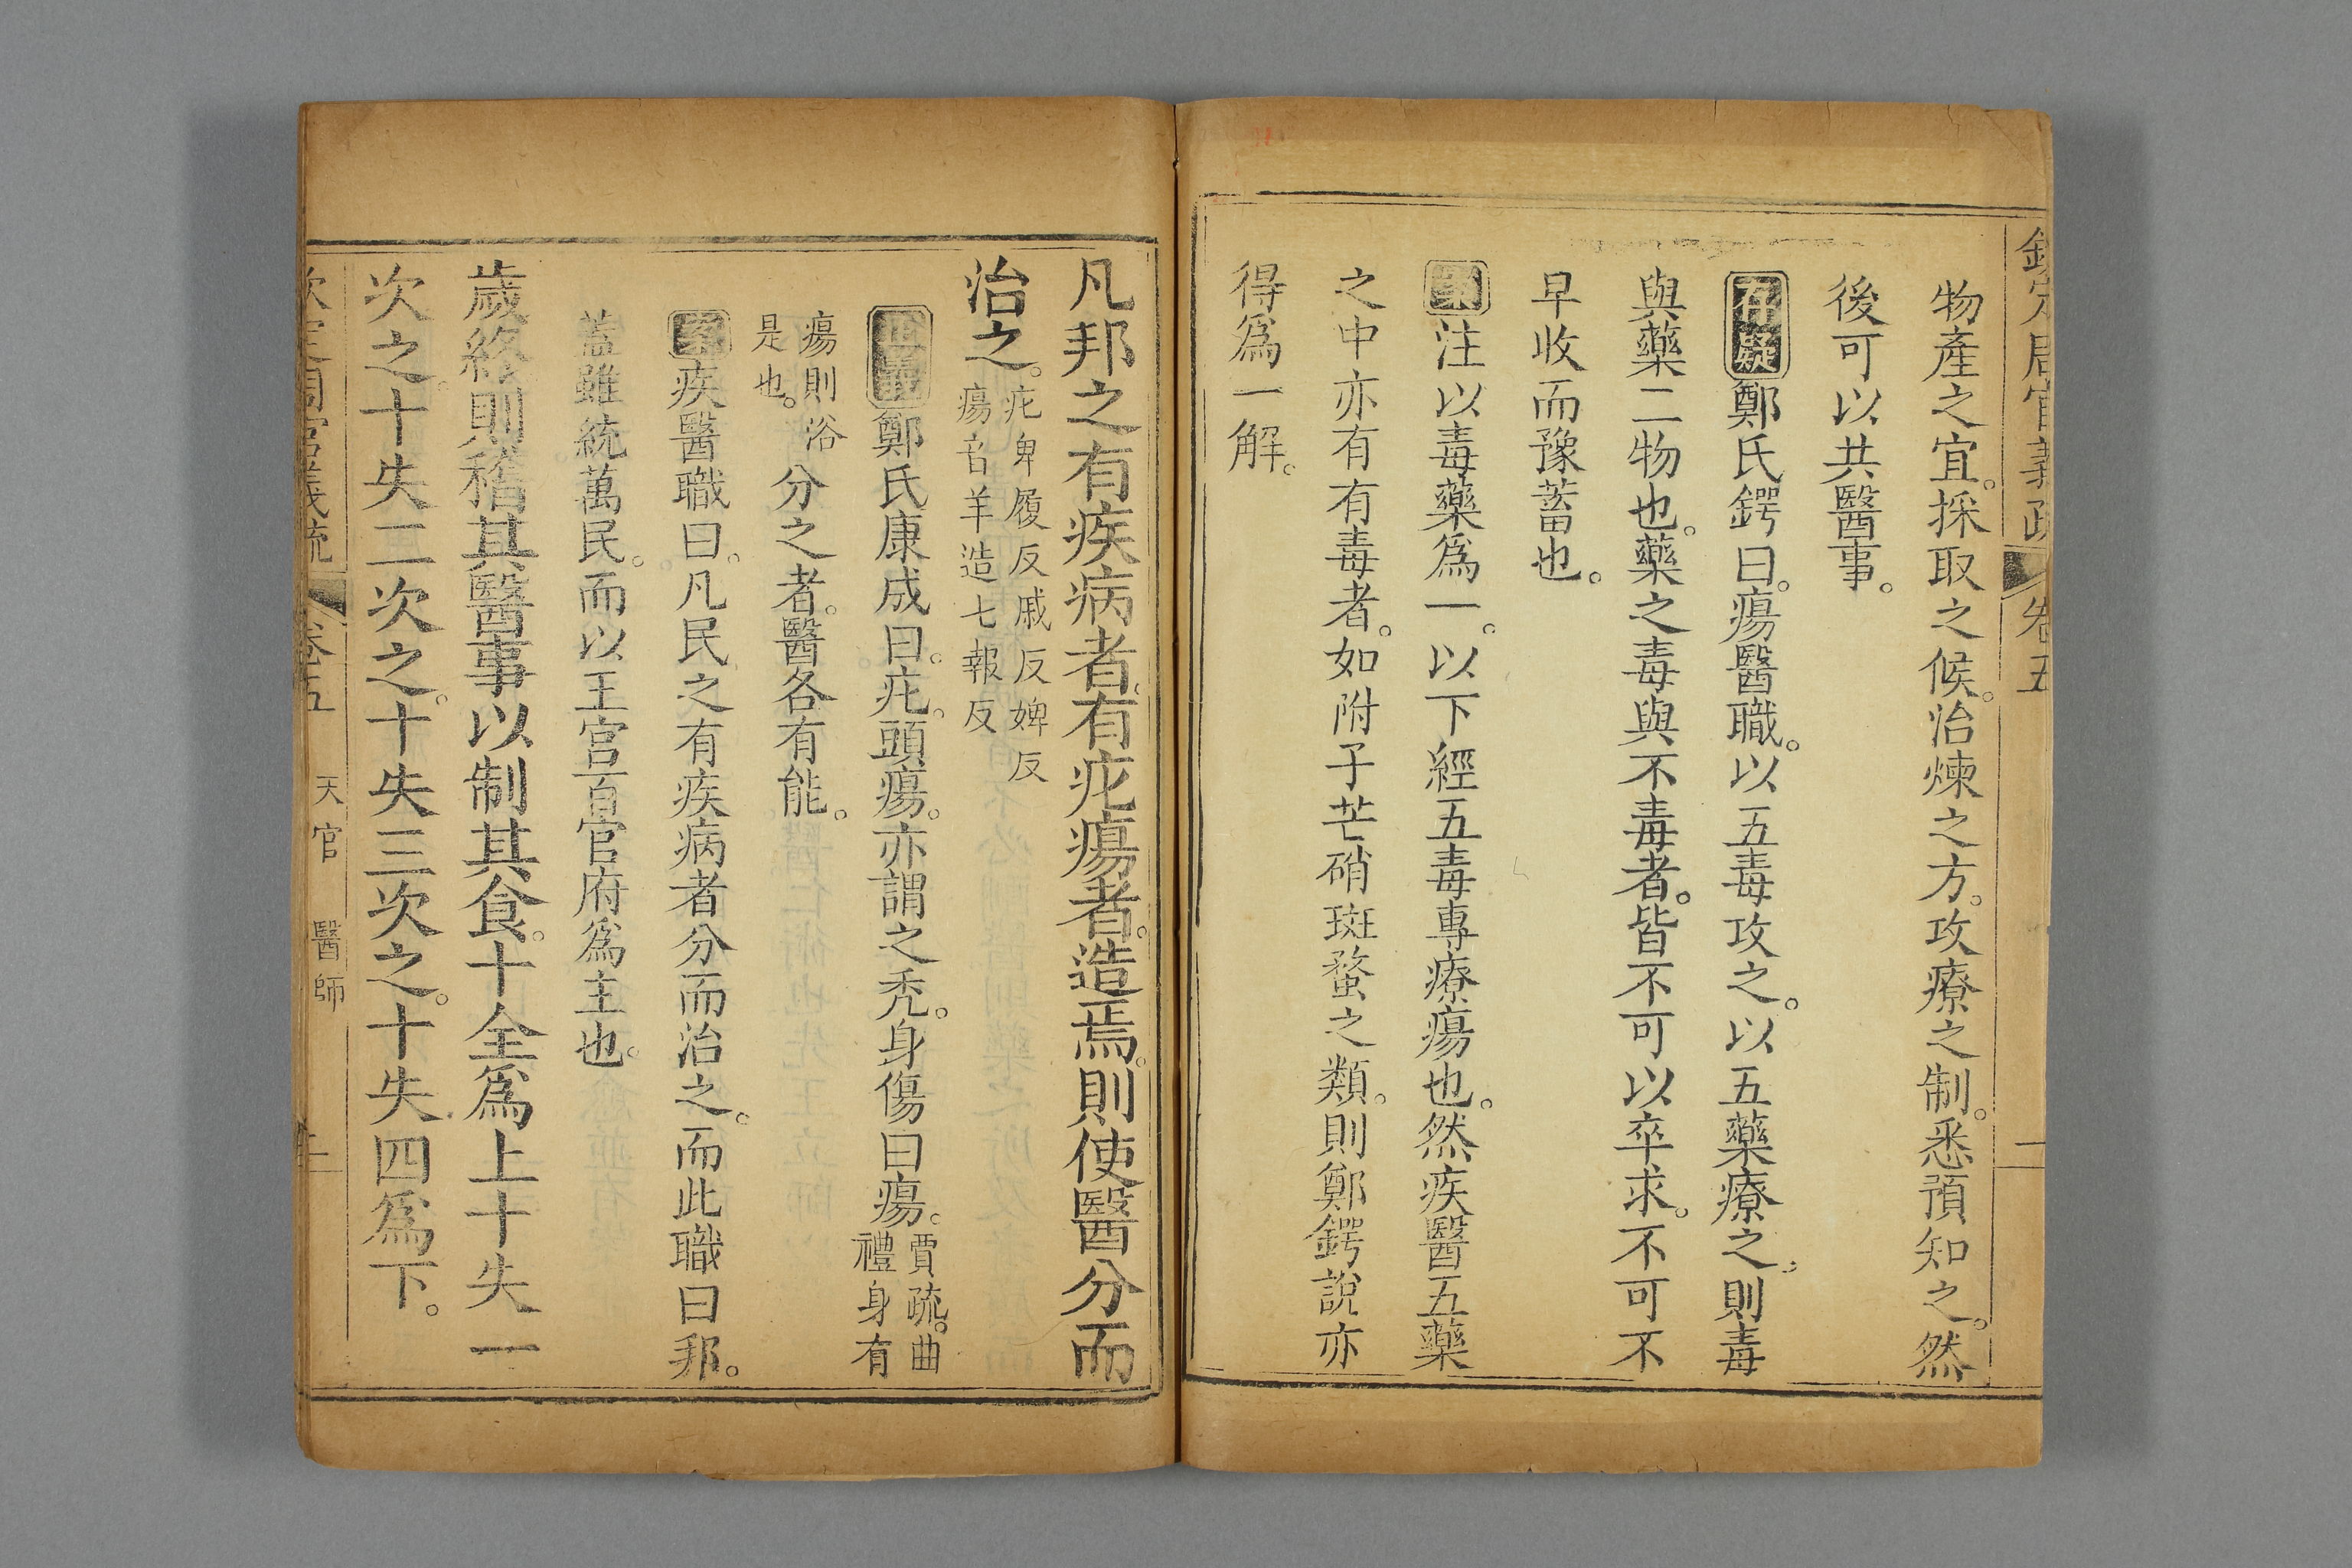 欽定周官義疏 卷五 一
物產之宜。採取之候。治煉之方。攻療之制。悉預知之。然
後可以共醫事。
存疑鄭氏鍔曰。瘍醫職。以五毒攻之。以五藥療之。則毒
與藥二物也。藥之毒與不毒者。皆不可以卒求。不可不
早收而豫蓄也。
案注以毒藥為一。以下經五毒專療瘍也。然疾醫五藥
之中亦有有毒者。如附子芒硝斑蝥之類。則鄭鍔說亦
得為一解。
凡邦之有疾病者。有疕瘍者。造焉。則使醫分而
治之。疕卑履反戚反婢反
瘍音羊造七報反
正義鄭氏康成曰。疕。頭瘍。亦謂之禿。身傷曰瘍。賈疏。曲
禮身有
瘍則浴
是也。分之者。醫各有能。
案疾醫職曰。凡民之有疾病者分而治之。而此職曰邦。
蓋雖統萬民。而以王宮百官府為主也。
歲終則稽其醫事以制其食。十全為上十失一
次之。十失二次之。十失三次之。十失四為下。
欽定周官義疏 卷五 天官 醫師